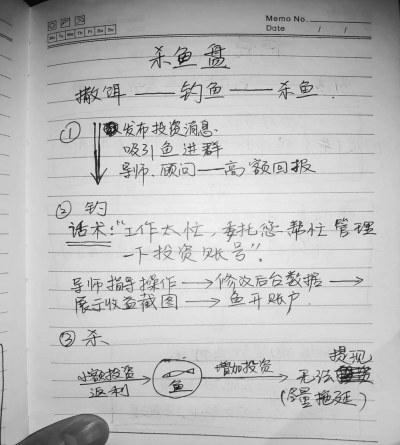 Memo No.
Mo Tu We Th Fr Sa Su
Date / /
杀鱼盘
撒饵——钓鱼——杀鱼.
① 发布投资消息.
吸引鱼进群
导师.顾问——高额回报
② 钓
话术:"工作太忙,委托您帮忙管理
一下投资账号".
导师指导操作→修改后台数据→
展示收益截图→鱼开账户.
③ 杀
小额投资 返利→鱼 增加投资→无法提现
(尽量拖延)